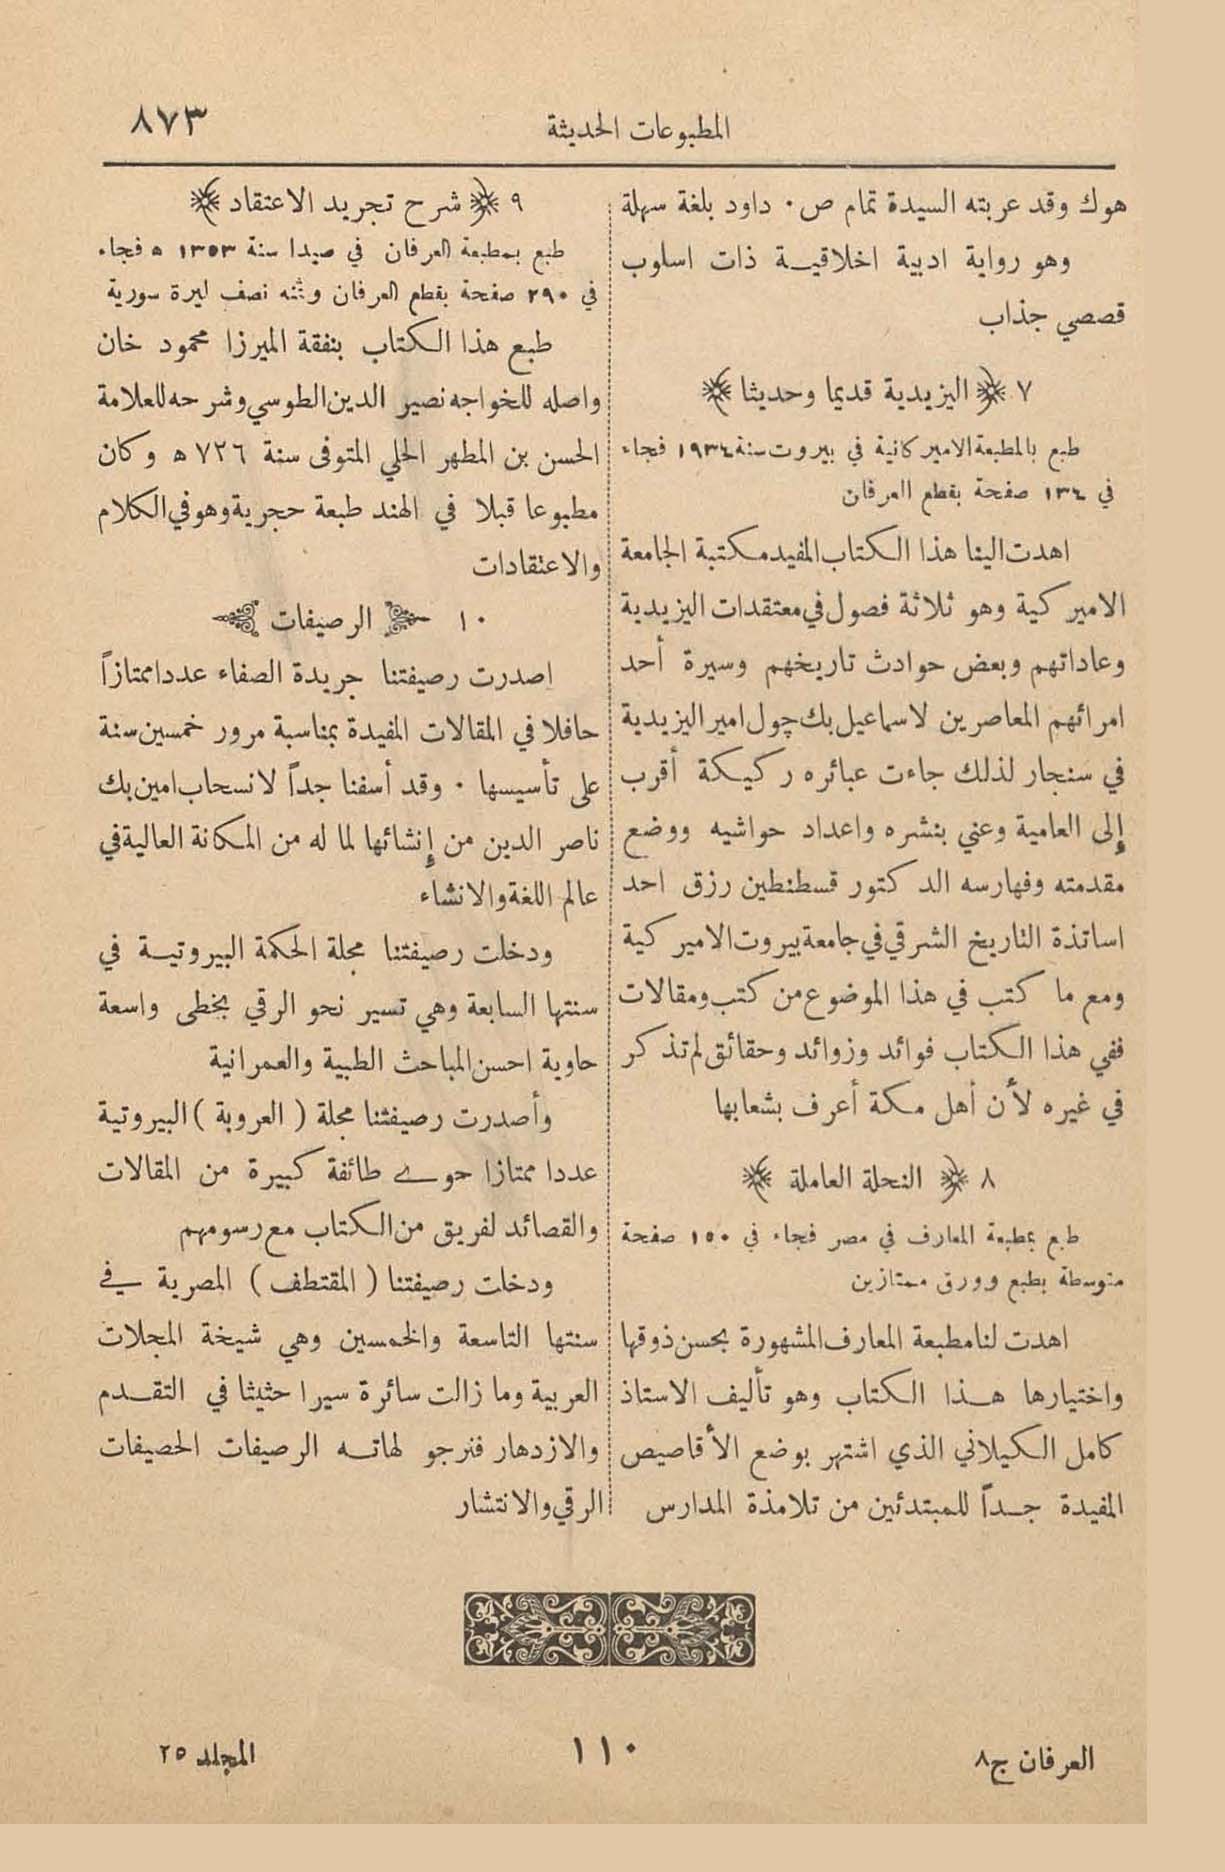 المطبوعات الحديثة
٨٧٣
هوك وقد عربته السيدة تمام ص٠ داود بلغة سهلة
وهو رواية ادبية اخلاقيـة ذات اسلوب
قصصي جذاب
٧ ﴿ اليزيدية قديما وحديثا ﴾
طبع بالمطبعة الاميركانية في بيروت سنة ١٩٣٤ فجاء
في ١٣٤ صفحة بقطع العرفان
اهدت الينا هذا الكتاب المفيد مكتبة الجامعة
الاميركية وهو ثلاثة فصول في معتقدات اليزيدية
وعاداتهم وبعض حوادث تاريخهم وسيرة أحد
امرائهم المعاصرين لاسماعيل بك چول امير اليزيدية
في سنجار لذلك جاءت عبائره ركيكة أقرب
إلى العامية وعني بنشره واعداد حواشيه ووضع
مقدمته وفهارسه الدكتور قسطنطين رزق احد
اساتذة التاريخ الشرقي في جامعة بيروت الاميركية
ومع ما كتب في هذا الموضوع من كتب ومقالات
ففي هذا الكتاب فوائد وزوائد وحقائق لم تذكر
في غيره لأن أهل مكة أعرف بشعابها
٨ ﴿ النحلة العاملة ﴾
طبع بمطبعة المعارف في مصر فجاء في ١٥٠ صفحة
متوسطة بطبع وورق ممتازين
اهدت لنا مطبعة المعارف المشهورة بحسن ذوقها
واختيارها هـذا الكتاب وهو تأليف الاستاذ
كامل الكيلاني الذي اشتهر بوضع الأقاصيص
المفيدة جـداً للمبتدئين من تلامذة المدارس
٩ ﴿ شرح تجريد الاعتقاد ﴾
طبع بمطبعة العرفان في صيدا سنة ١٣٥٣ ه فجاء
في ٢٩٠ صفحة بقطع العرفان وثمنه نصف ليرة سورية
طبع هذا الكتاب بنفقة الميرزا محمود خان
واصله للخواجه نصير الدين الطوسي وشرحه للعلامة
الحسن بن المطهر الحلي المتوفى سنة ٧٢٦ ه وكان
مطبوعا قبلا في الهند طبعة حجرية وهو في الكلام
والاعتقادات
١٠ الرصيفات
اصدرت رصيفتنا جريدة الصفاء عددا ممتازاً
حافلا في المقالات المفيدة بمناسبة مرور خمسين سنة
على تأسيسها ٠ وقد أسفنا جداً لانسحاب امين بك
ناصر الدين من إنشائها لما له من المكانة العالية في
عالم اللغة والانشاء
ودخلت رصيفتنا مجلة الحكمة البيروتيـة في
سنتها السابعة وهي تسير نحو الرقي بخطى واسعة
حاوية احسن المباحث الطبية والعمرانية
وأصدرت رصيفتنا مجلة ( العروبة ) البيروتية
عددا ممتازا حوے طائفة كبيرة من المقالات
والقصائد لفريق من الكتاب مع رسومهم
ودخلت رصيفتنا ( المقتطف ) المصرية في
سنتها التاسعة والخمسين وهي شيخة المجلات
العربية وما زالت سائرة سيرا حثيثا في التقـدم
والازدهار فنرجو لهاتـه الرصيفات الحصيفات
الرقي والانتشار
العرفان ج٨
١١٠
المجلد ٢٥